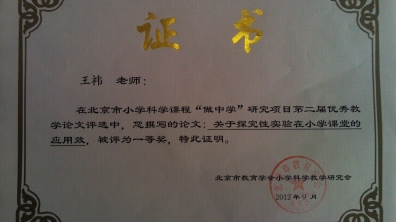 证书
王祎 老师：
在北京市小学科学课程“做中学”研究项目第二届优秀教
学论文评选中，您撰写的论文：关于探究性实验在小学课堂的
应用效，被评为一等奖，特此证明。
北京市教育学会小学科学教学研究会
2012年9月